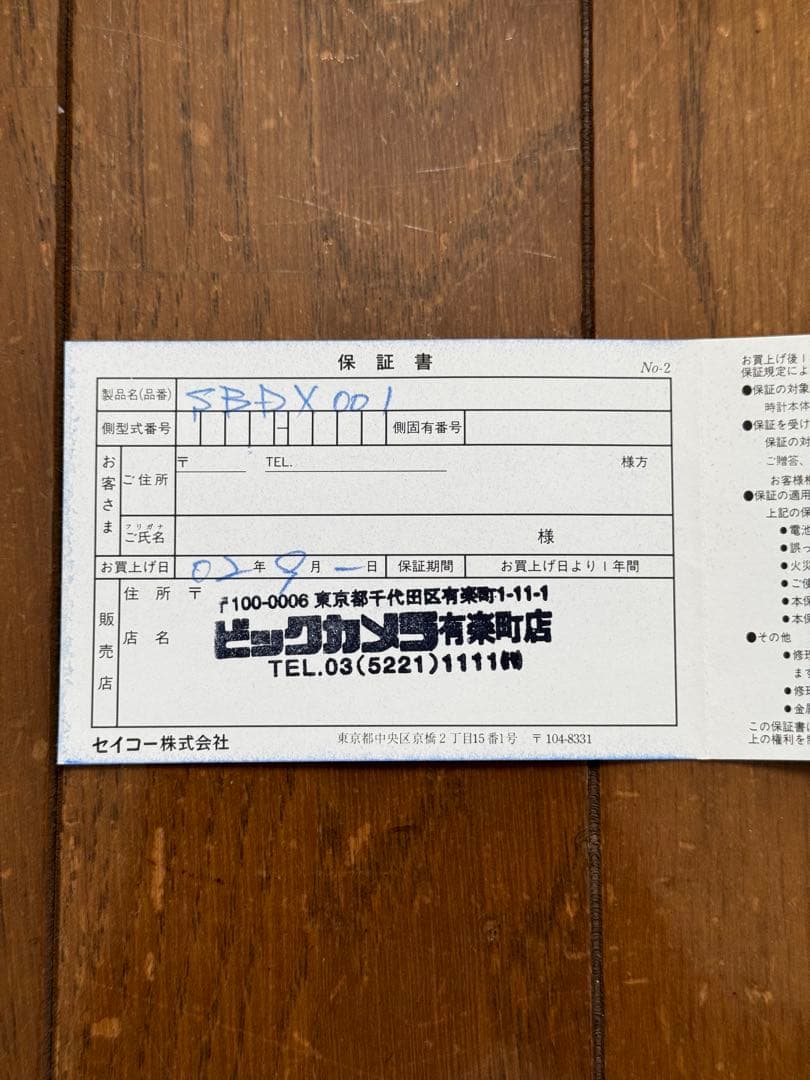 保証書
No-2
製品名(品番) SBDX001
側型式番号 － 側固有番号
お客さま
ご住所 〒 TEL. 様方
フリガナ
ご氏名 様
お買上げ日 02年9月一日 保証期間 お買上げ日より1年間
販売店
住所 〒
〒100-0006 東京都千代田区有楽町1-11-1
店名 ビックカメラ有楽町店
TEL.03(5221)1111㈹
セイコー株式会社 東京都中央区京橋2丁目15番1号 〒104-8331
お買上げ後1
保証規定によ
●保証の対象
時計本体
●保証を受け
保証の対
ご贈答、
お客様相
●保証の適用
上記の保
●電池
●誤っ
●火災
●ご使
●本保
●本保
●その他
●修理
ます
●修理
●金属
この保証書に
上の権利を制